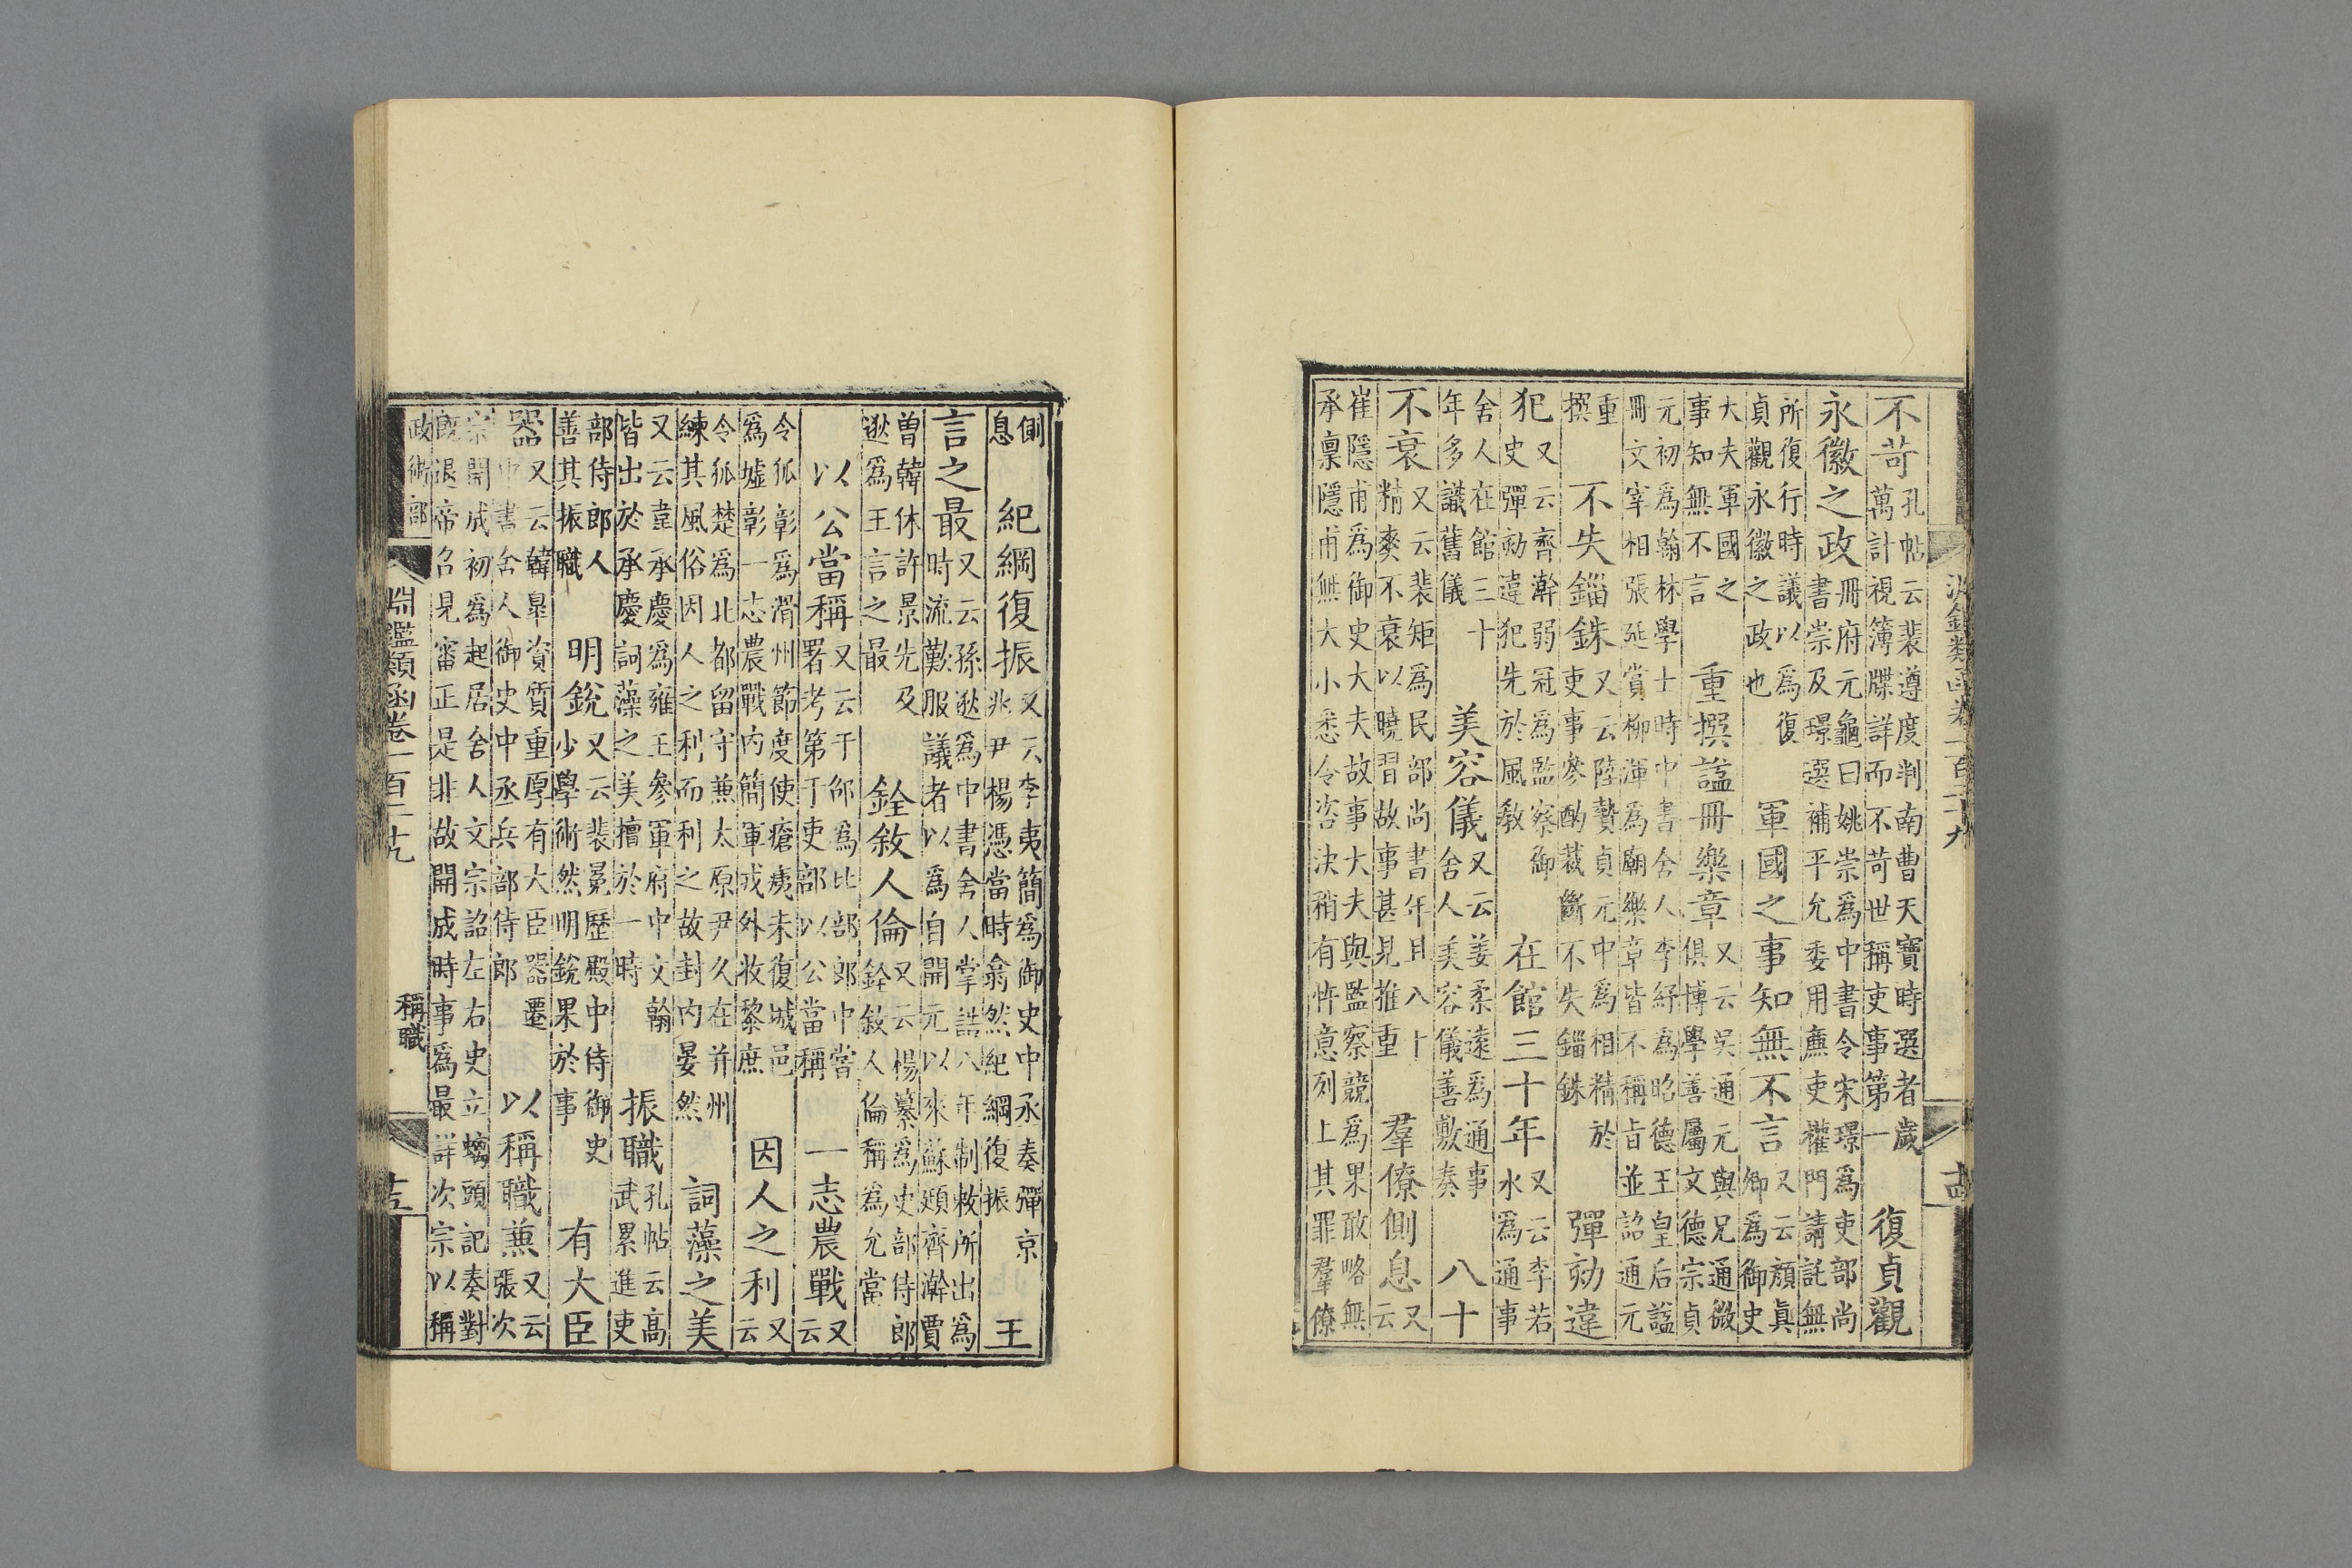 淵鑑類函卷一百二十九
十四
不苛孔帖云裴遵度判南曹天寶時選者歲萬計視簿牒詳而不苛世稱吏事第一　復貞觀
永徽之政冊府元龜曰姚崇爲中書令宋璟爲吏部尚書崇及璟選補平允委用廉吏權門請託無
所復行時議以爲復貞觀永徽之政也　軍國之事知無不言又云顏眞卿爲御史
大夫軍國之事知無不言　重撰謚冊樂章又云吳通元與兄通微俱博學善屬文德宗貞
元初爲翰林學士時中書舍人李紓爲昭德王皇后謚冊文宰相張延賞柳渾爲廟樂章皆不稱旨並詔通元
重撰　不失錙銖又云陸贄貞元中爲相精於吏事參酌裁斷不失錙銖　彈劾違
犯又云齊澣弱冠爲監察御史彈劾違犯先於風敎　在館三十年又云李若水爲通事
舍人在館三十年多識舊儀　美容儀又云姜柔遠爲通事舍人美容儀善敷奏　八十
不衰又云裴矩爲民部尚書年且八十精爽不衰以曉習故事甚見推重　羣僚側息又云
崔隱甫爲御史大夫故事大夫與監察競爲果敢略無承稟隱甫無大小悉令咨決稍有忤意列上其罪羣僚
側息　紀綱復振又云李夷簡爲御史中丞奏彈京兆尹楊憑當時翕然紀綱復振　王
言之最又云孫逖爲中書舍人掌誥八年制敕所出爲時流歎服議者以爲自開元以來蘇頲齊澣賈
曾韓休許景先及逖爲王言之最　銓敘人倫又云楊纂爲吏部侍郎銓敘人倫稱爲允當
　以公當稱又云于邠爲比部郎中當署考第于吏部以公當稱　一志農戰又云
令狐彰爲滑州節度使瘡痍未復城邑爲墟彰一志農戰內簡軍戎外牧黎庶　因人之利又云
令狐楚爲北都留守兼太原尹久在并州練其風俗因人之利而利之故封內晏然　詞藻之美
又云韋承慶爲雍王參軍府中文翰皆出於承慶詞藻之美擅於一時　振職孔帖云高武累進吏
部侍郎人善其振職　明銳又云裴冕歷殿中侍御史少學術然明銳果於事　有大臣
器又云韓臯資質重厚有大臣器遷中書舍人御史中丞兵部侍郎　以稱職兼又云張次
宗開成初爲起居舍人文宗詔左右史立螭頭記奏對旣退帝召見審正是非故開成時事爲最詳次宗以稱
政術部
淵鑑類函卷一百二十九
稱職
十五